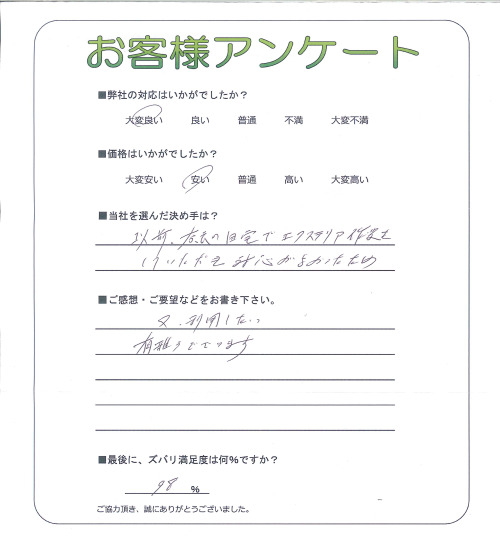 お客様アンケート
■弊社の対応はいかがでしたか？
大変良い 良い 普通 不満 大変不満
■価格はいかがでしたか？
大変安い 安い 普通 高い 大変高い
■当社を選んだ決め手は？
以前、 の自宅でエクステリア作業を
していただき対応がよかったため
■ご感想・ご要望などをお書き下さい。
又、利用したい
有難うございます
■最後に、ズバリ満足度は何%ですか？
98 %
ご協力頂き、誠にありがとうございました。